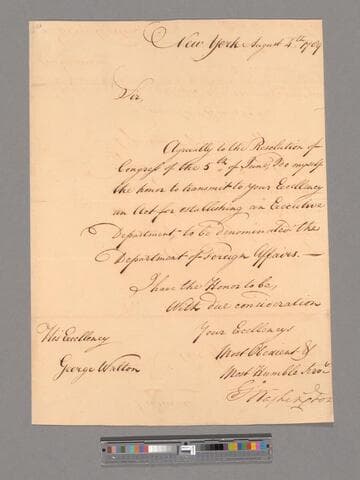 New York August 4th 1789
Sir,
Agreeably to the Resolution of
Congress of the 5th of June, I do myself
the honor to transmit to your Excellency
an Act for establishing an Executive
Department, to be denominated the
Department of Foreign Affairs. —
I have the Honor to be,
With due consideration
Your Excellency's
Most Obedient &
Most Humble Servt
Go Washington
His Excellency
George Walton